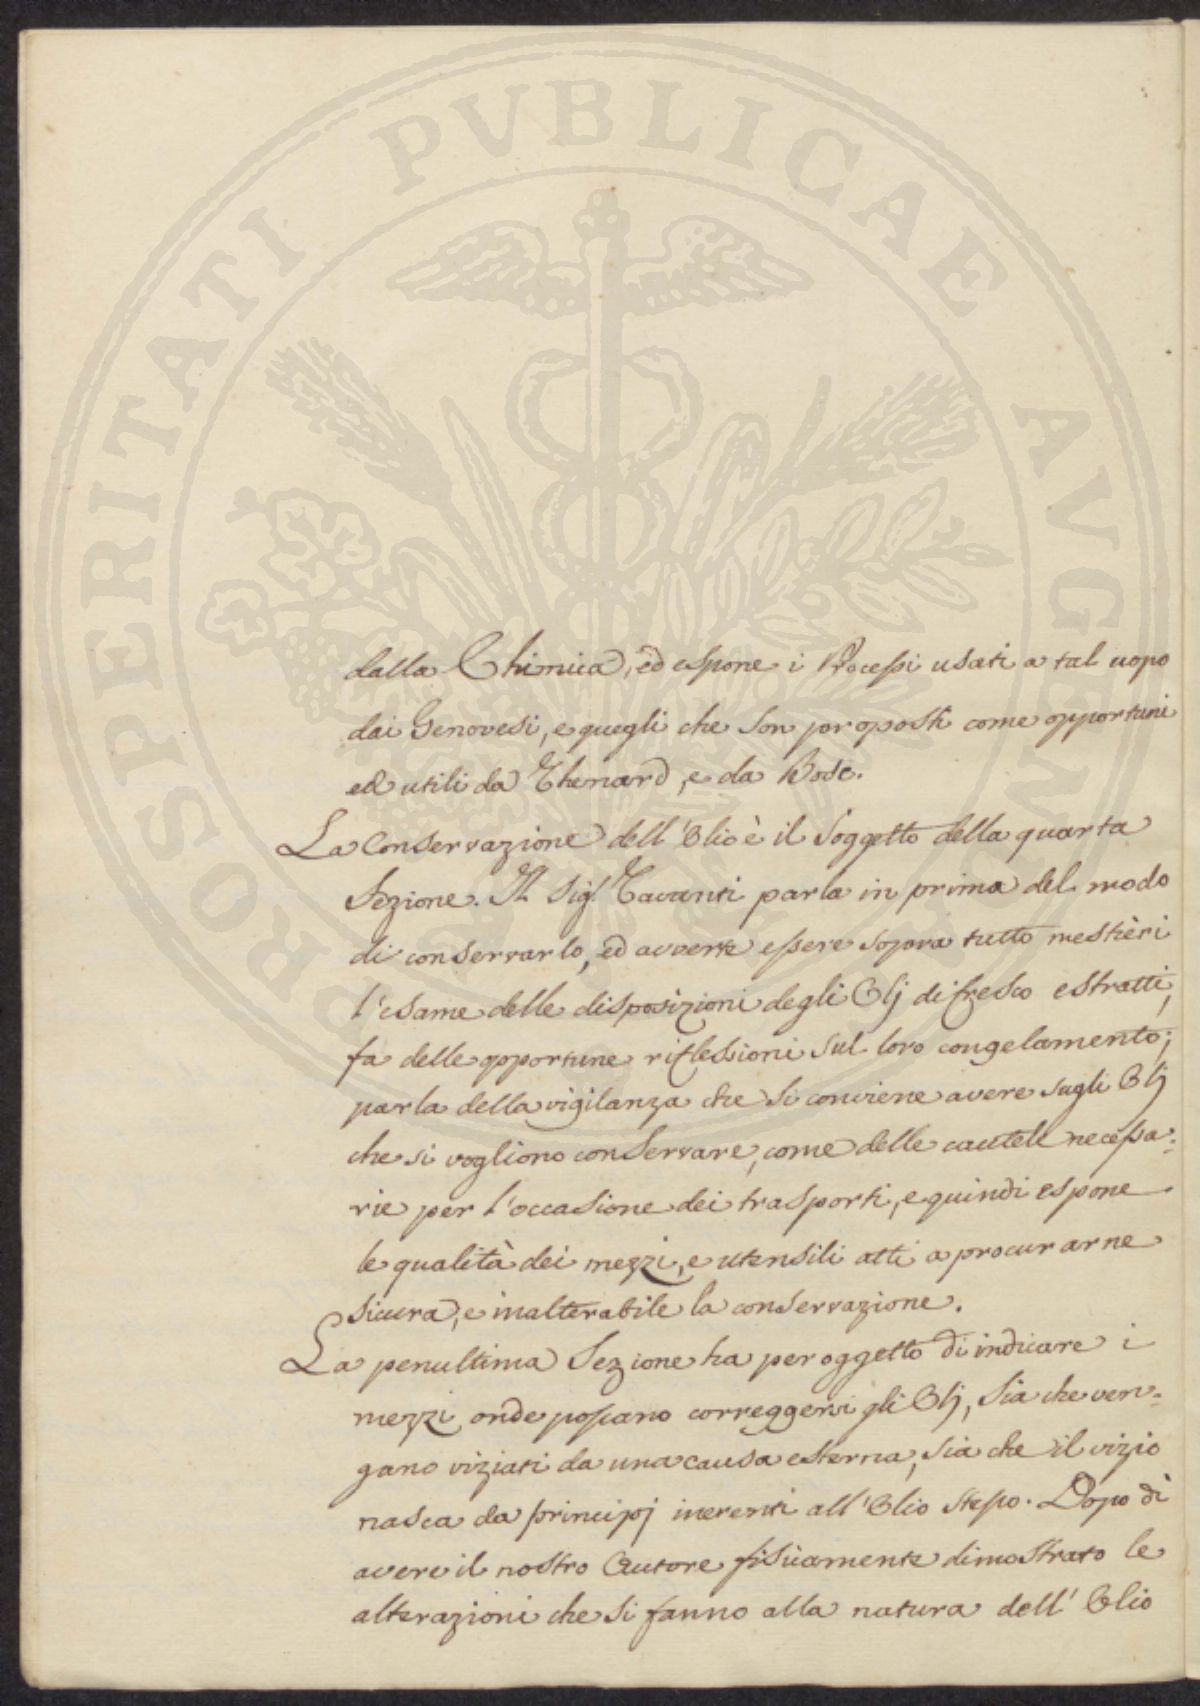 PROSPERITATI PUBLICAE AVGENDAE
dalla Chimica, ed espone i Processi usati a tal uopo
dai Genovesi, e quegli che son proposti come opportuni
ed utili da Thenard, e da Bosc.
La Conservazione dell'Olio è il soggetto della quarta
Sezione. Il Sig.r Tavanti parla in prima del modo
di conservarlo, ed avverte essere sopra tutto mestièri
l'esame delle disposizioni degli Olj di fresco estratti,
fa delle opportune riflessioni sul loro congelamento;
parla della vigilanza che si conviene avere sugli Olj
che si vogliono conservare, come delle cautele necessa=
rie per l'occasione dei trasporti, e quindi espone
le qualità dei mezzi, e utensili atti a procurarne
sicura, e inalterabile la conservazione.
La penultima Sezione ha per oggetto di indicare i
mezzi onde possano correggersi gli Olj, sia che ven=
gano viziati da una causa esterna, sia che il vizio
nasca da principj inerenti all'Olio stesso. Dopo di
avere il nostro Autore fisicamente dimostrato le
alterazioni che si fanno alla natura dell'Olio